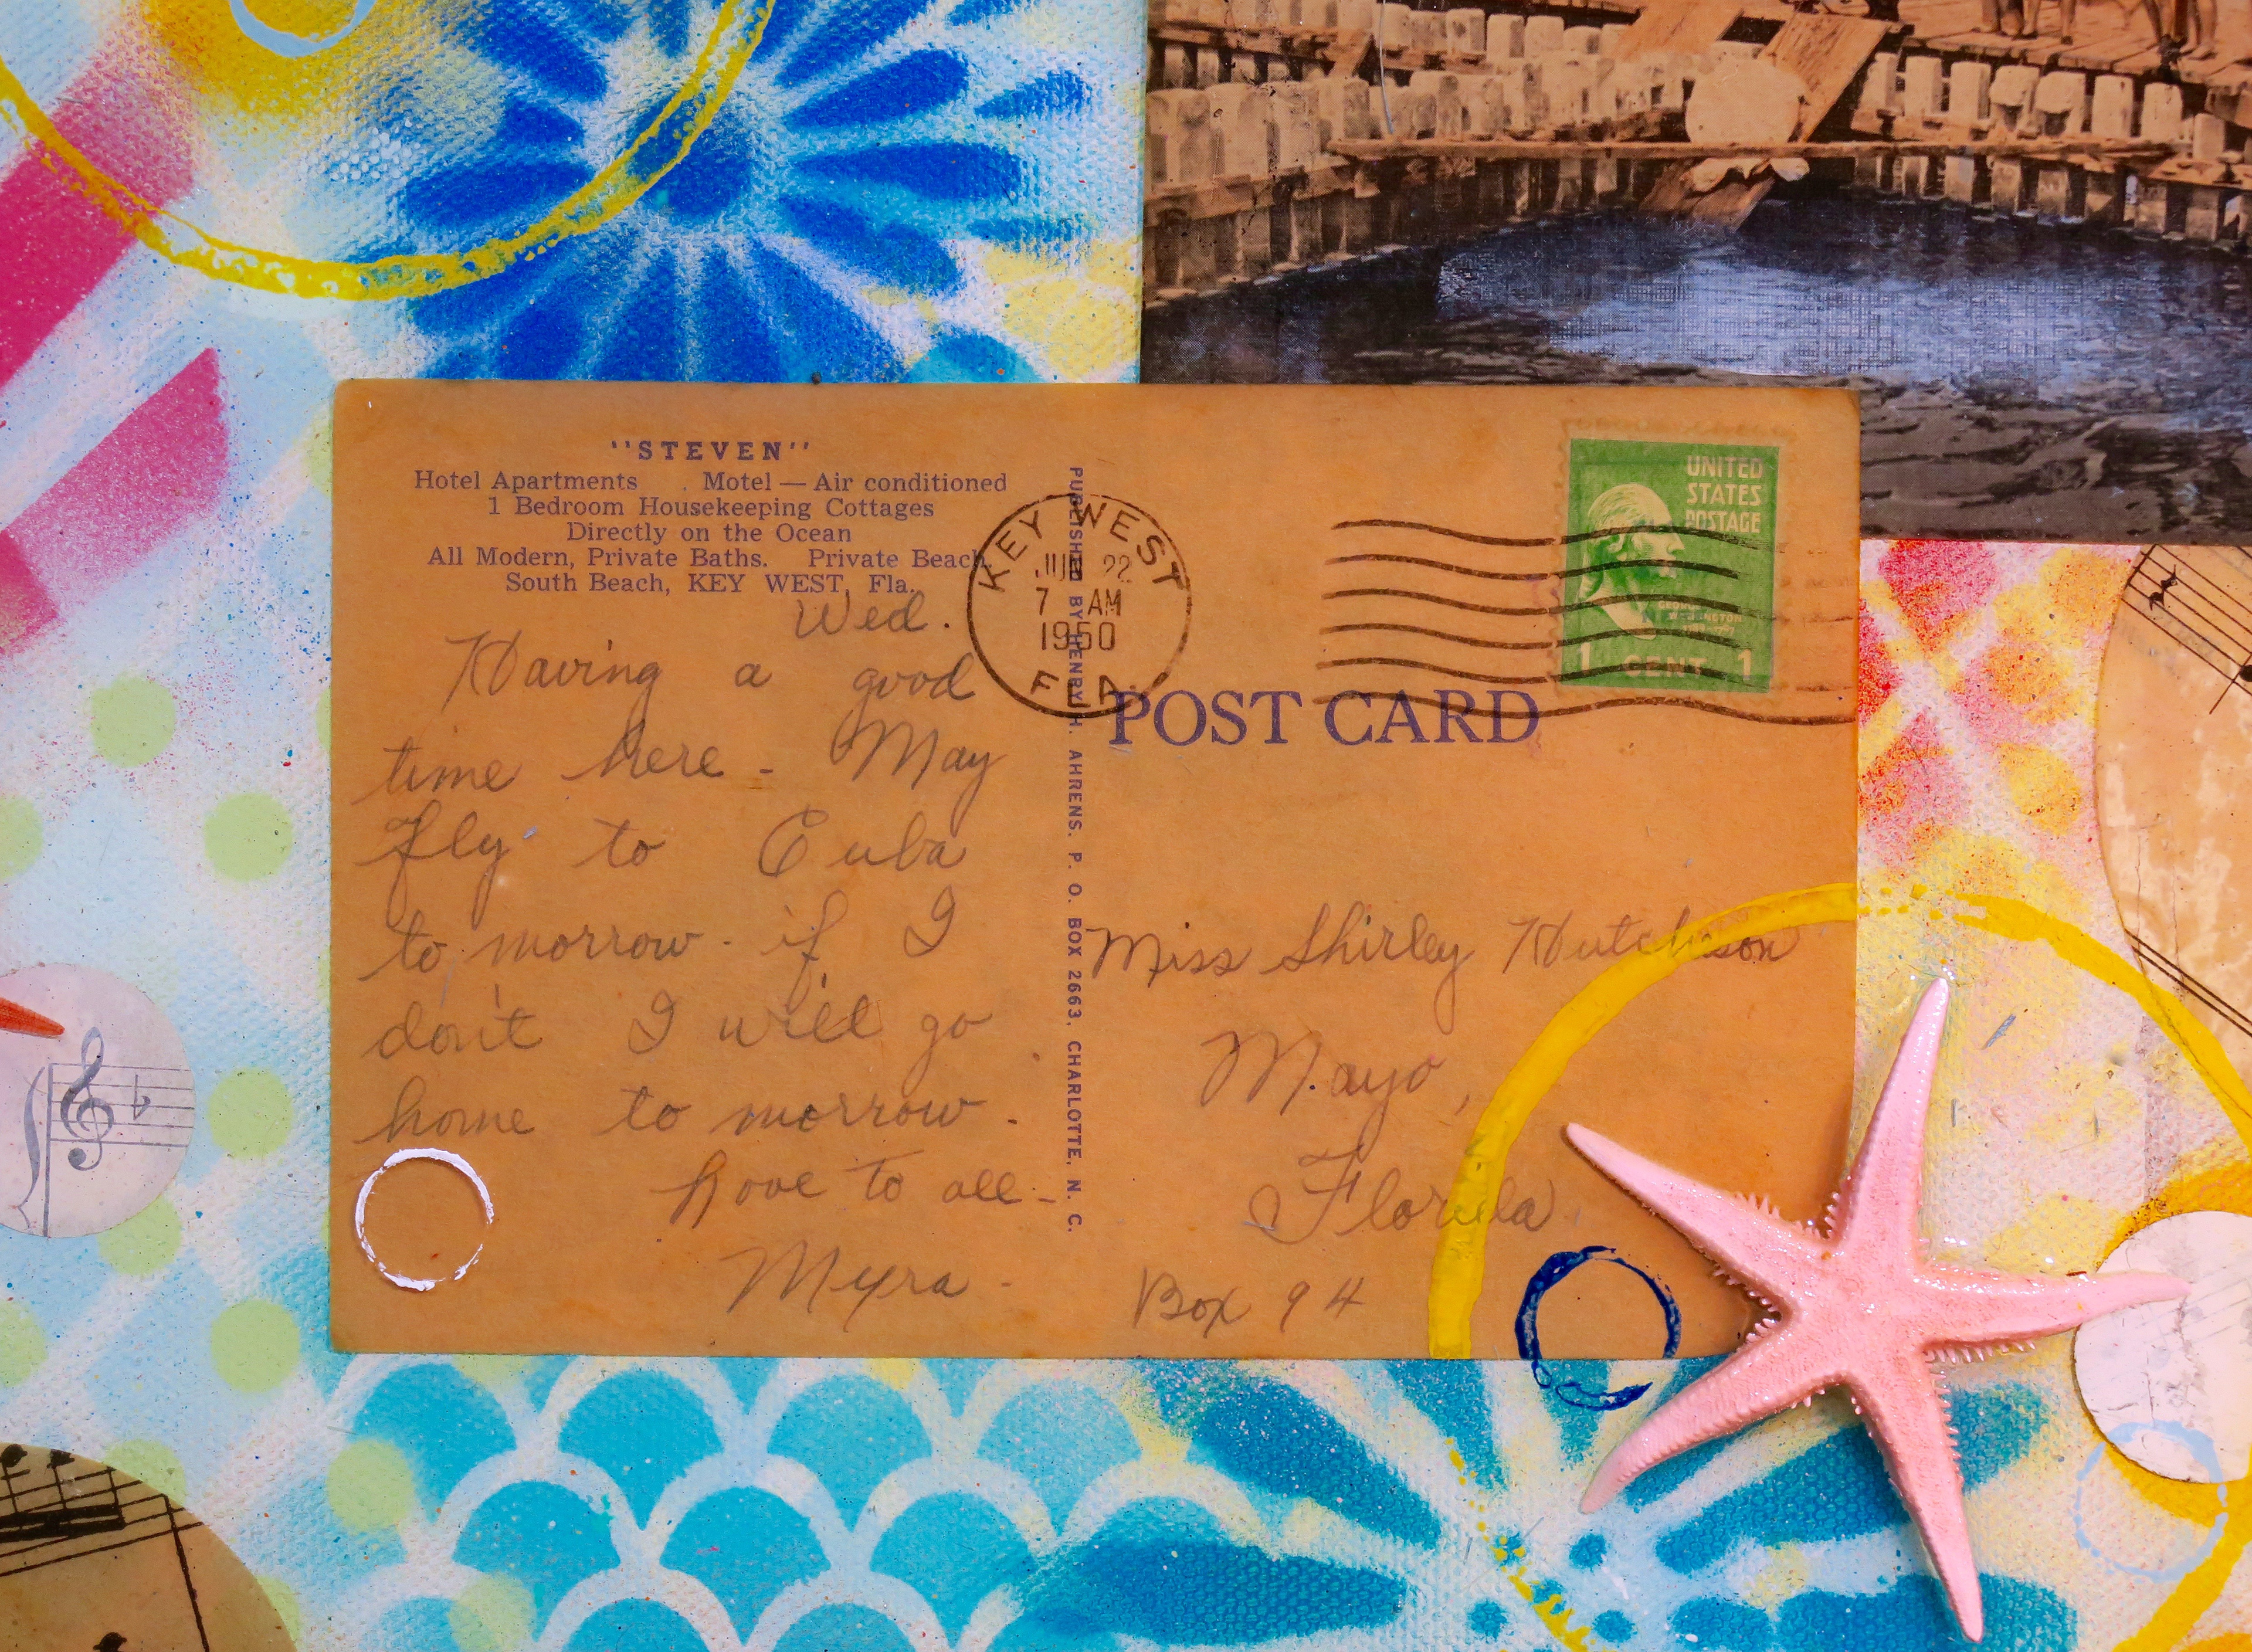 "STEVEN"
Hotel Apartments . Motel — Air conditioned
1 Bedroom Housekeeping Cottages
Directly on the Ocean
All Modern, Private Baths. Private Beach.
South Beach, KEY WEST, Fla.
Wed.
Having a good
time here - May
fly to Cuba
to morrow. if I
don't I will go
home to morrow.
Love to all -
Myra -
PUBLISHED BY HENRY H. AHRENS. P. O. BOX 2663, CHARLOTTE, N. C.
KEY WEST
JUN 22
7 AM
1950
FLA
POST CARD
UNITED
STATES
POSTAGE
GEORGE
WASHINGTON
1789-1797
1 CENT 1
Miss Shirley Hutchison
Mayo,
Florida
Box 94